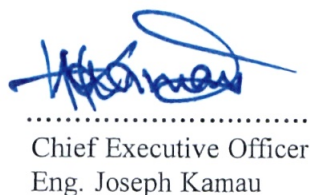 Chief Executive Officer
Eng. Joseph Kamau